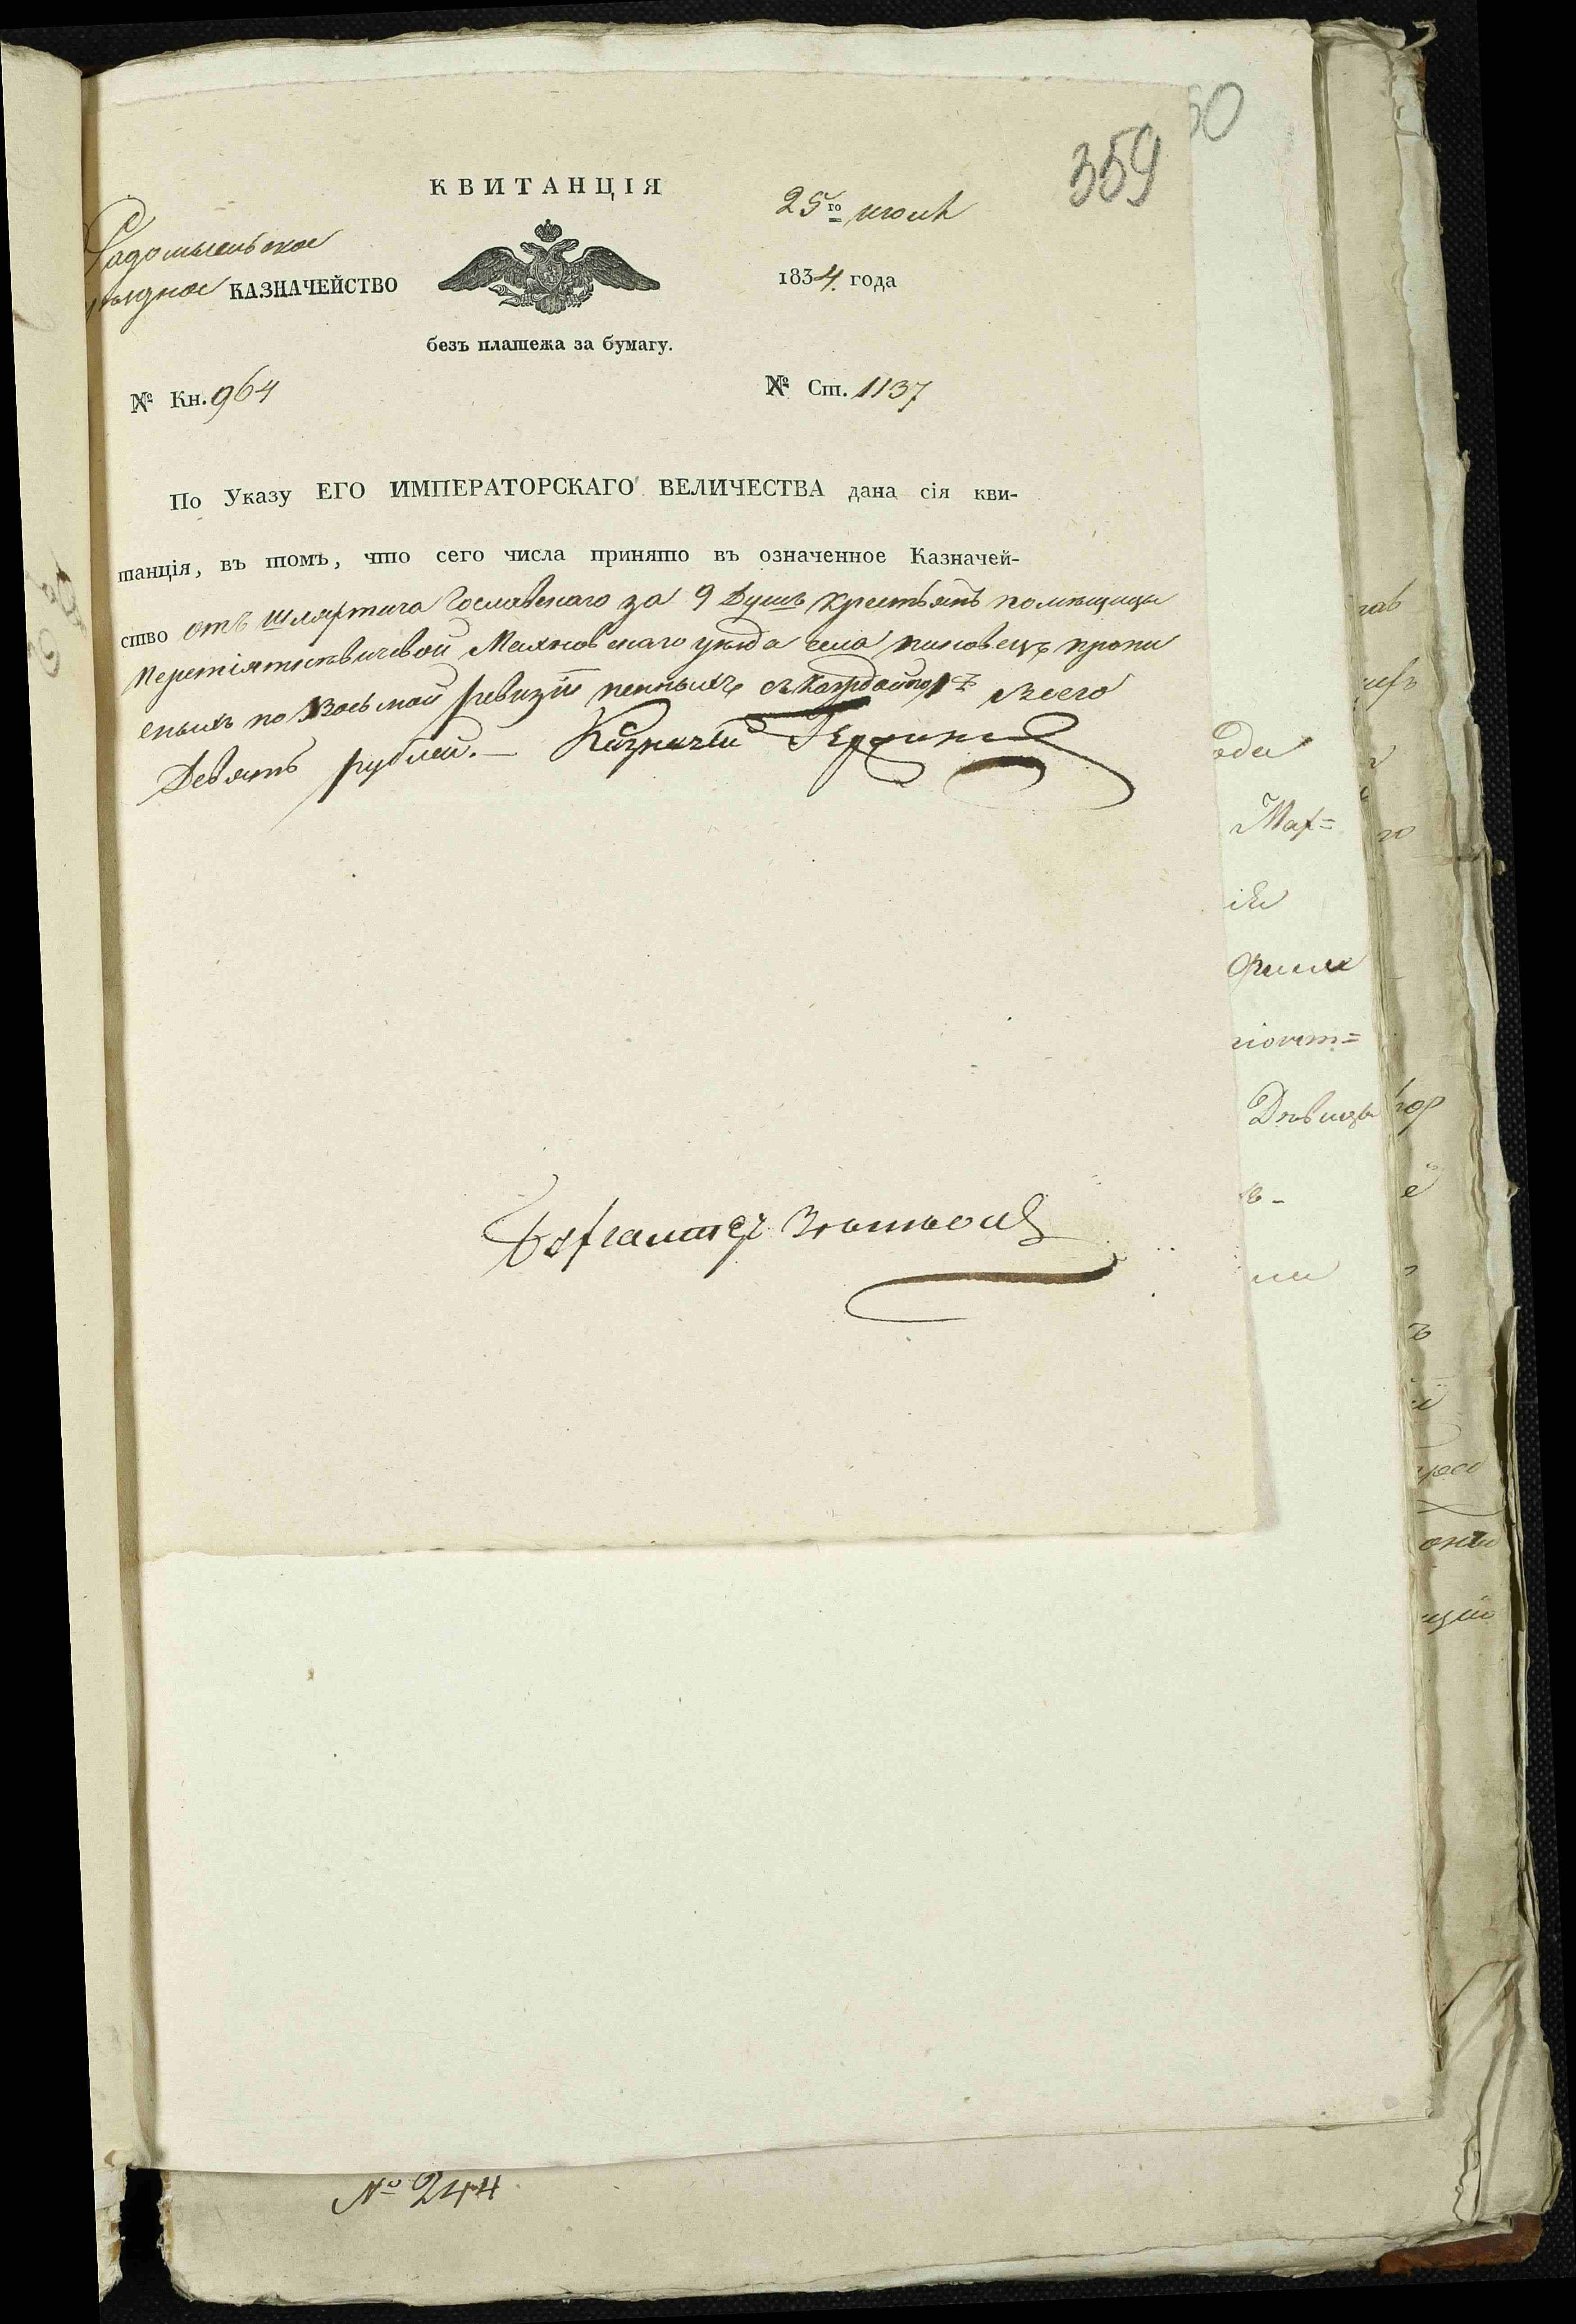 359
60
КВИТАНЦІЯ
25го июля
Радомысльское
уѣздное КАЗНАЧЕЙСТВО
1834 года
безъ платежа за бумагу.
№ Кн. 964
№ Ст. 1137
По Указу ЕГО ИМПЕРАТОРСКАГО ВЕЛИЧЕСТВА дана сія кви-
танція, въ томъ, что сего числа принято въ означенное Казначей-
ство отъ шляхтича Гославскаго за 9 душъ крестьянъ помѣщицы
Перетіятковичевой Махновскаго уѣзда села пиковецъ пропи
сныхъ по Восьмой ревизіи пенныхъ съ каждой по 1 всего
Девять рублей. — Казначей
Бухгалтеръ
ода
Мар=
Дѣвицы
№ 244